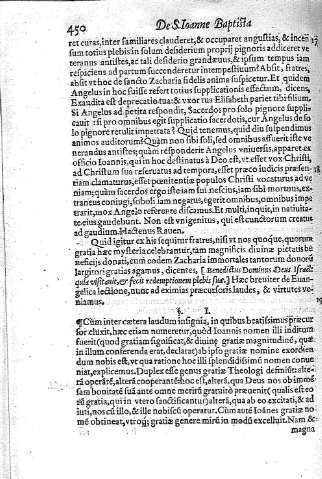 450 De S. Ioanne Baptista
ret curas, inter familiares clauderet, & occuparet angustias, & incẽn 17
sum totius plebis in solum desiderium proprij pignoris addiceret ve
teranus antistes, ac tali desiderio grandæuus, & ipsum tempus iam
respiciens ad partum succenderetur intempestiuum? Absit, fratres,
absit vt hoc de sancto Zacharia fidelis anima suspicetur. Et quidem
Angelus in hoc suisse refert totius supplicationis effectum, dicens,
Exaudita est deprecatio tua: & vxor tua Elisabeth pariet tibi filium.
Si Angelus ad petita respondit, Sacerdos pro solo pignore suppli-
cauit: si pro omnibus egit supplicatio sacerdotis, cur Angelus de so
lo pignore retulit impetrata? Quid tenemus, quid diu suspendimus
animos auditorum? Quàm non sibi soli, sed omnibus affuerit iste ve
nerandus antistes; quàm responderit Angelus vniuersis, apparet ex
officio Ioannis, qui in hoc destinatus à Deo est, vt esset vox Christi,
ad Christum sua reseruatus ad tempora, esset præco iudicis præsen- 18
tiam clamaturus, esset pœnitentiæ populis Christi vocaturus ad ve
niam; quàm sacerdos ergo iste iam sui nescius, iam sibi mortuus, ex-
traneus coniugi, soboli iam negatus, egerit omnibus, omnibus impe
trarit, mox Angelo referente discamus. Et multi, inquit, in natiuita-
te eius gaudebunt. Non est vnigenitus, qui est cunctorum creatus
ad gaudium. Hactenus Rauen.
Quid igitur ex his sequitur fratres, nisi vt nos quoque, quorum
gratia hæc mysteria celebrantur, tam magnificis diuinæ pietatis be
neficijs donati, cum eodem Zacharia immortales tantorum donorũ
largitori gratias agamus, dicentes, [Benedictus Dominus Deus Israel:
quia visitauit, & fecit redemptionem plebis suæ.] Hæc breuiter de Euan-
gelica lectione, nunc ad eximias præcursoris laudes, & virtutes ve-
niamus.
§. I. 19
¶ Cùm inter cætera laudum insignia, in quibus beatissimus præcur
sor eluxit, hæc etiam numeretur, quòd Ioannis nomen illi inditum
fuerit (quod gratiam significat, & diuinę gratiæ magnitudinẽ, quæ
in illum conferenda erat, declarat) ab ipso gratiæ nomine exordien
dum nobis est, vt qua ratione hoc illi splendidissimũ nomen conue
niat, explicemus. Duplex esse genus gratiæ Theologi definiũt alte-
rã operãtẽ, alterã cooperantẽ: hoc est, alterã, qua Deus nos ob immẽ
sam bonitatẽ suã ante omne meritũ gratuitò præuenit (qualis est eo
rũ gratia, qui in vtero sanctificantur) alterã, qua ab eo excitati, & ad
iuti, nos cũ illo, & ille nobiscũ operatur. Cùm autẽ Ioãnes gratiæ no-
mẽ obtineat, vtroq; gratiæ genere mirũ in modũ excelluit. Nam &
magna